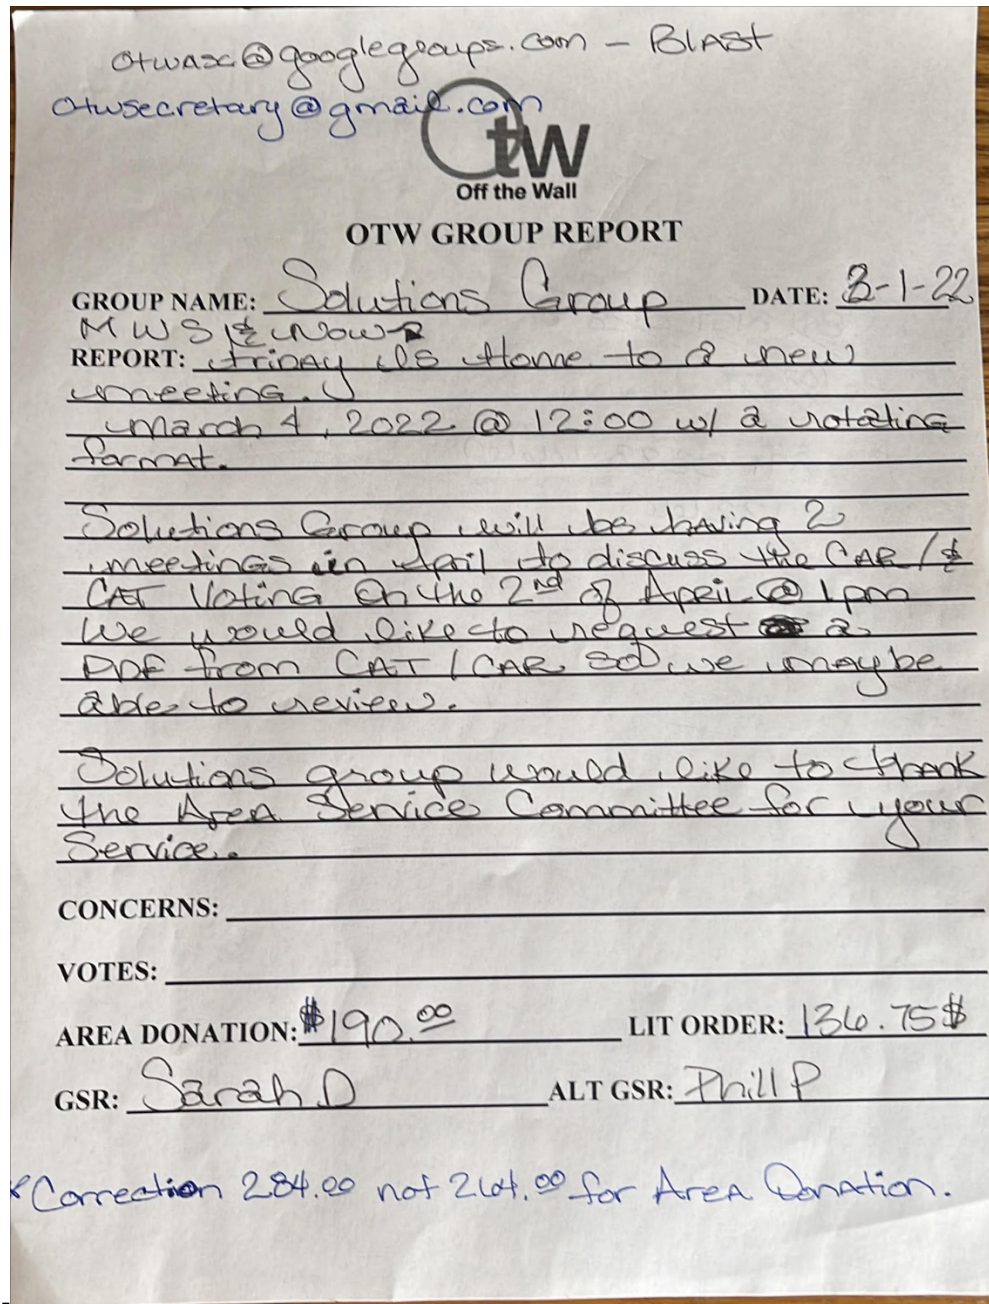 otwasc@googlegroups.com - BLAST
otwsecretary@gmail.com
OtW
Off the Wall
OTW GROUP REPORT
GROUP NAME: Solutions Group DATE: 3-1-22
M W S & Now
REPORT: Friday is Home to a new
meeting.
March 4, 2022 @ 12:00 w/ a rotating
format.
Solutions Group will be having 2
meetings in April to discuss the CAR / &
CAT Voting on the 2nd of April @ 1pm
We would like to request a
PDF from CAT / CAR so we maybe
able to review.
Solutions group would like to thank
the Area Service Committee for your
Service.
CONCERNS:
VOTES:
AREA DONATION: $190.00 LIT ORDER: 136.75$
GSR: Sarah D ALT GSR: Phill P
*Correction 284.00 not 264.00 for Area Donation.